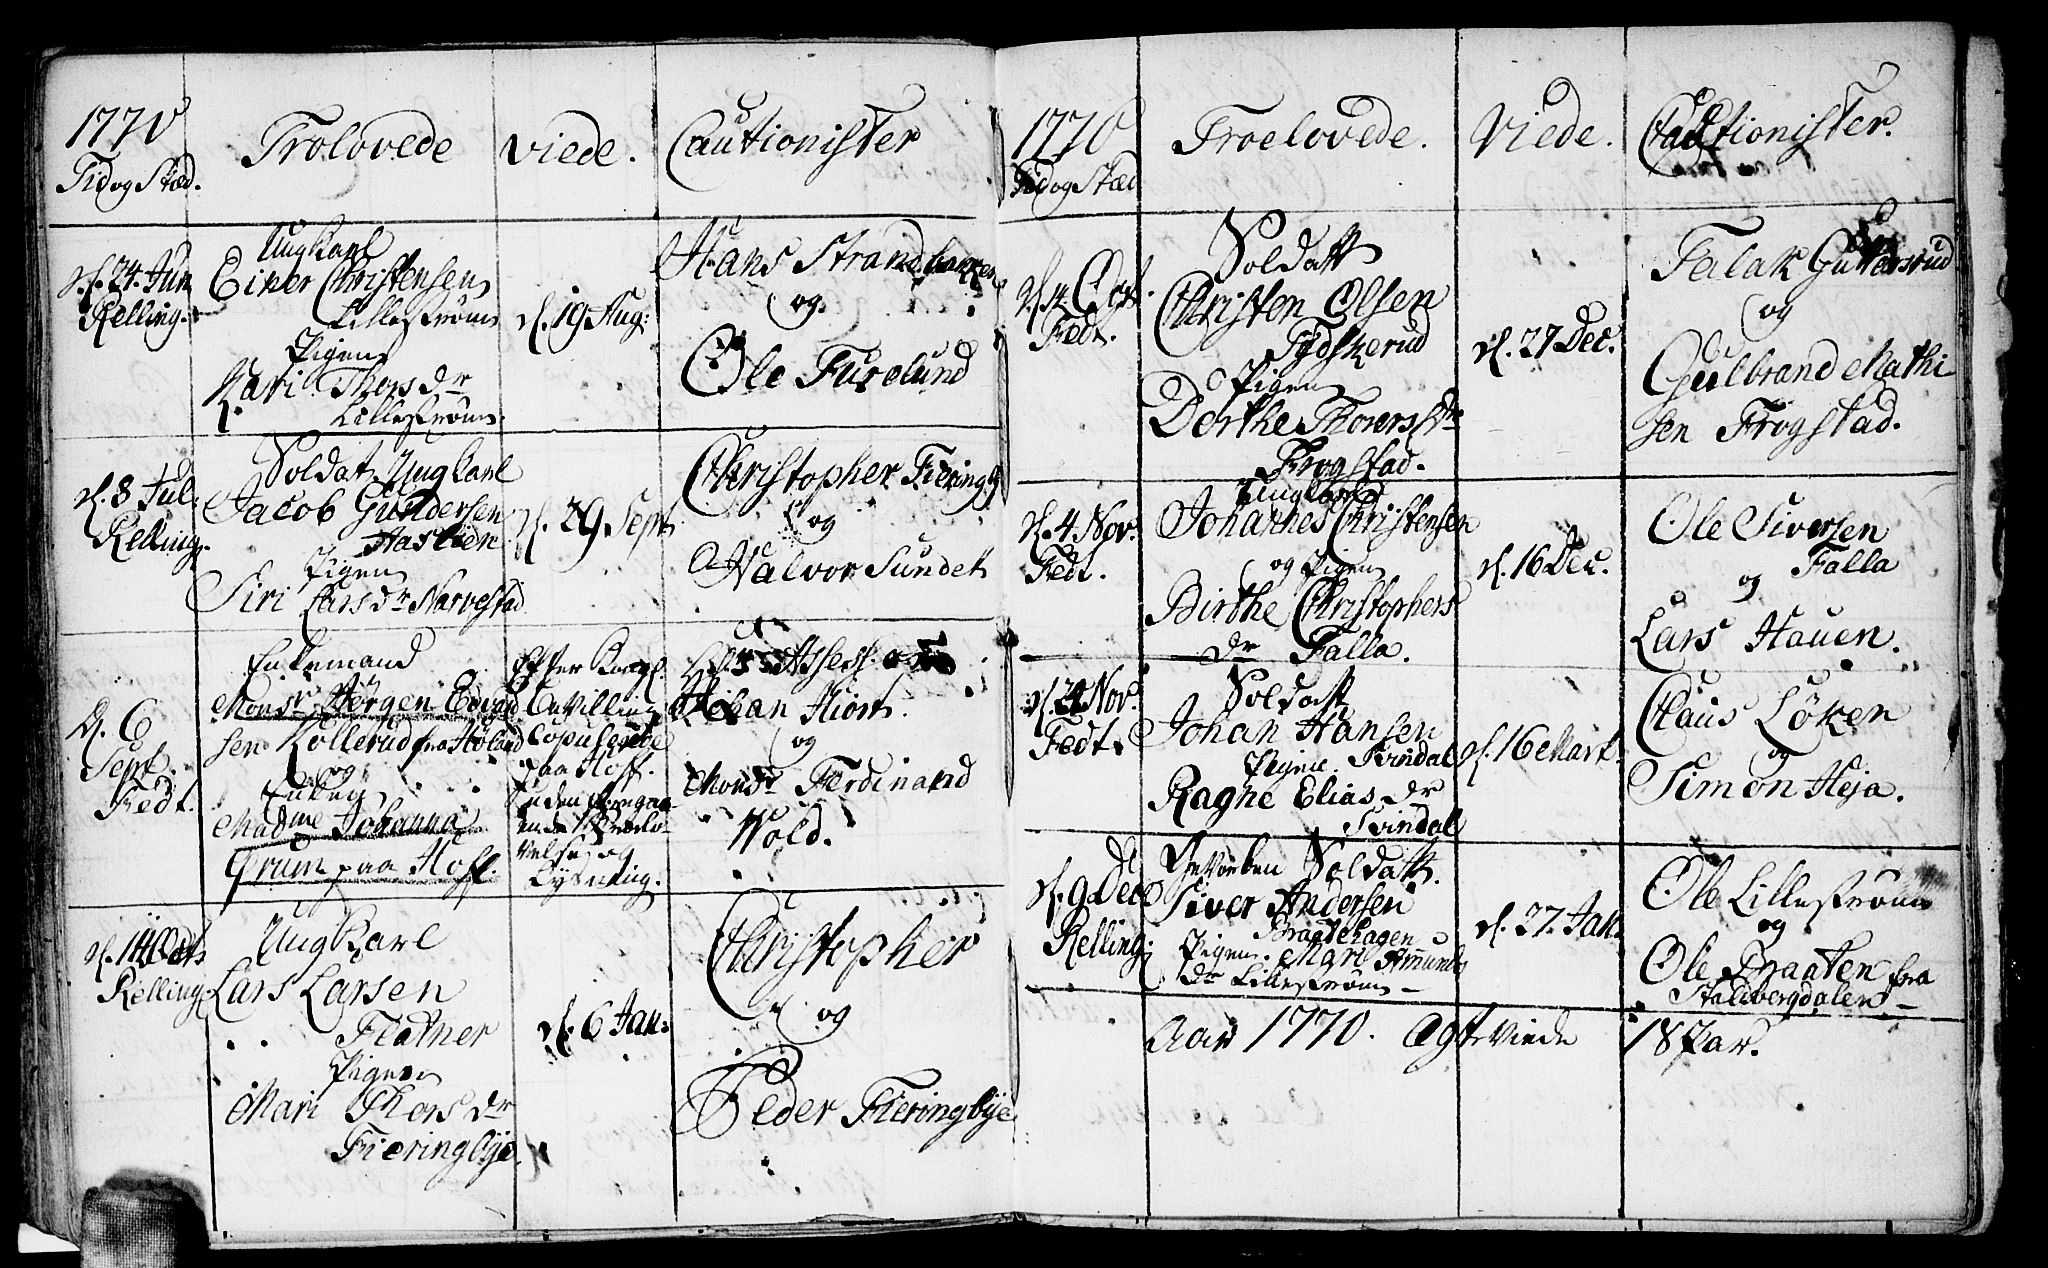 1770
Tid og Stæd.
Trolovede
Viede.
Cautionister
d. 24. Jun
Relling.
Ungkarl
Einer Christensen
Lillestrøm
Pigen
Kari Thorsdr
Lillestrøm.
d. 19. Aug:
Hans Strandbakken
og
Ole Furelund
d. 8 Jul.
Relling.
Soldat Ungkarl
Jacob Gundersen
Haslien
Pigen
Siri Larsdr Narvestad
d. 29. Sept.
Christopher Fieringb
og
Halvor Sundet
d. 6
Sept.
Fedt.
Enkemand
Monsr Jørgen
sen Kollerud fra Høland
og
Enken
Madme Johanna
Grum paa Hoff.
Efter Kongl.
Bevilling
Copulerede
paa Hoff.
uden foregaa-
ende Troelo-
velse og
Lysning.
Assess.
Hiort.
og
Monsr Ferdinand
Wold.
d. 14 Oct.
Relling.
Ungkarl
Lars Larsen
Flatner
Pigen
Mari Thorsdr
Fieringbye.
d. 6 Jan.
Christopher
og
Peder Fieringbye
1770
Tid og Stæd
Troelovede.
Viede.
Cautionister.
Oct.
Fedt.
Soldatt
Christen Olsen
Tydskerud
Pigen
Dorthe Thorersdr
Frogstad.
d. 27 Dec.
Falak Gutersrud
og
Gulbrand Mathi
sen Frogstad.
d. 4. Nov.
Fedt.
Ungkarl
Johannes Christensen
og Pigen
Birthe Christophers
dr Falla.
d. 16 Dec.
Ole Siversen
Falla
og
Lars Hauen.
Nov.
Fedt.
Soldatt
Johan Hansen
Pigen Svindal
Ragne Elias dr
Svindal
d. 16 Mart.
Claus Löken
og
Simon Heja.
d. 9 Dec
Relling:
Gevorben Soldatt.
Siver Andersen
Braatehagen
Pigen. Mari Amunds
dr Lillestrøm
d. 27. Jan.
Ole Lillestrøm
og
Ole Braaten fra
Stalsbergdalen
Aar 1770. Ægteviede 18 Par.